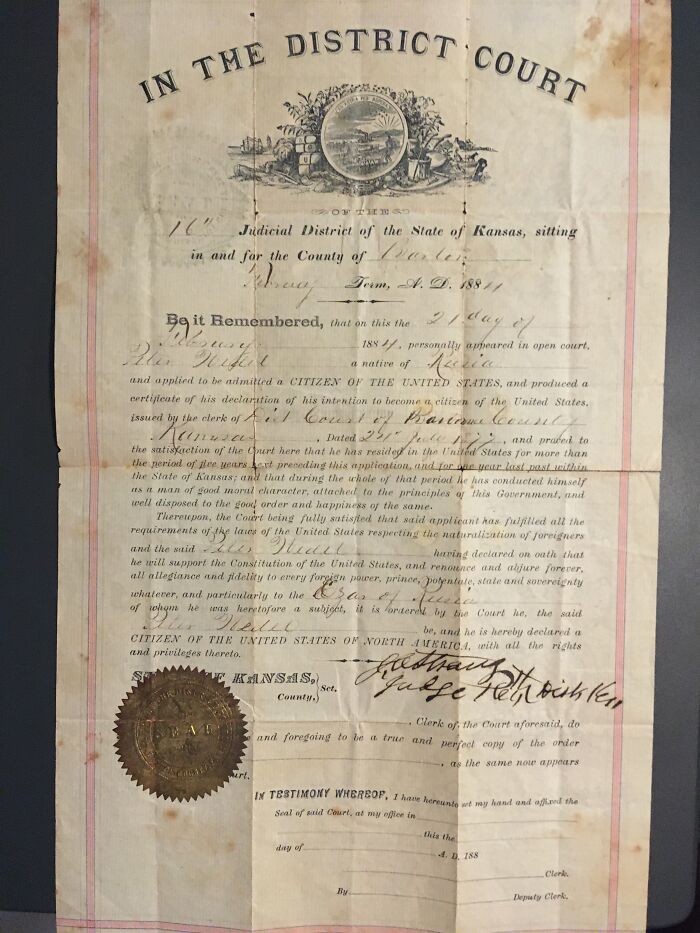 IN THE DISTRICT COURT
OF THE
16th Judicial District of the State of Kansas, sitting
in and for the County of Barton
Term, A. D. 1884
Be it Remembered, that on this the 21 day of
February 1884, personally appeared in open court,
Peter Wedel a native of Rusia
and applied to be admitted a CITIZEN OF THE UNITED STATES, and produced a
certificate of his declaration of his intention to become a citizen of the United States,
issued by the clerk of Dist Court of County
Kansas, Dated 24th July 1877, and proved to
the satisfaction of the Court here that he has resided in the United States for more than
the period of five years next preceding this application, and for one year last past within
the State of Kansas; and that during the whole of that period he has conducted himself
as a man of good moral character, attached to the principles of this Government, and
well disposed to the good order and happiness of the same.
Thereupon, the Court being fully satisfied that said applicant has fulfilled all the
requirements of the laws of the United States respecting the naturalization of foreigners
and the said Peter Wedel having declared on oath that
he will support the Constitution of the United States, and renounce and abjure forever,
all allegiance and fidelity to every foreign power, prince, potentate, state and sovereignty
whatever, and particularly to the Czar of Rusia
of whom he was heretofore a subject, it is ordered by the Court he, the said
Peter Wedel be, and he is hereby declared a
CITIZEN OF THE UNITED STATES OF NORTH AMERICA, with all the rights
and privileges thereto.
J C Strang
Judge 16th Dist Kan
OF KANSAS,
County, Sct.
Clerk of the Court aforesaid, do
and foregoing to be a true and perfect copy of the order
, as the same now appears
SEAL
IN TESTIMONY WHEREOF, I have hereunto set my hand and affixed the
Seal of said Court, at my office in
this the
day of A. D. 188
Clerk.
By Deputy Clerk.